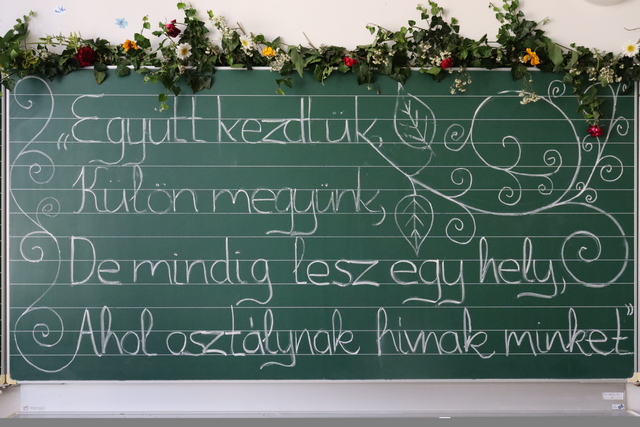 „Együtt kezdtük,
Külön megyünk,
De mindig lesz egy hely,
Ahol osztálynak hívnak minket”